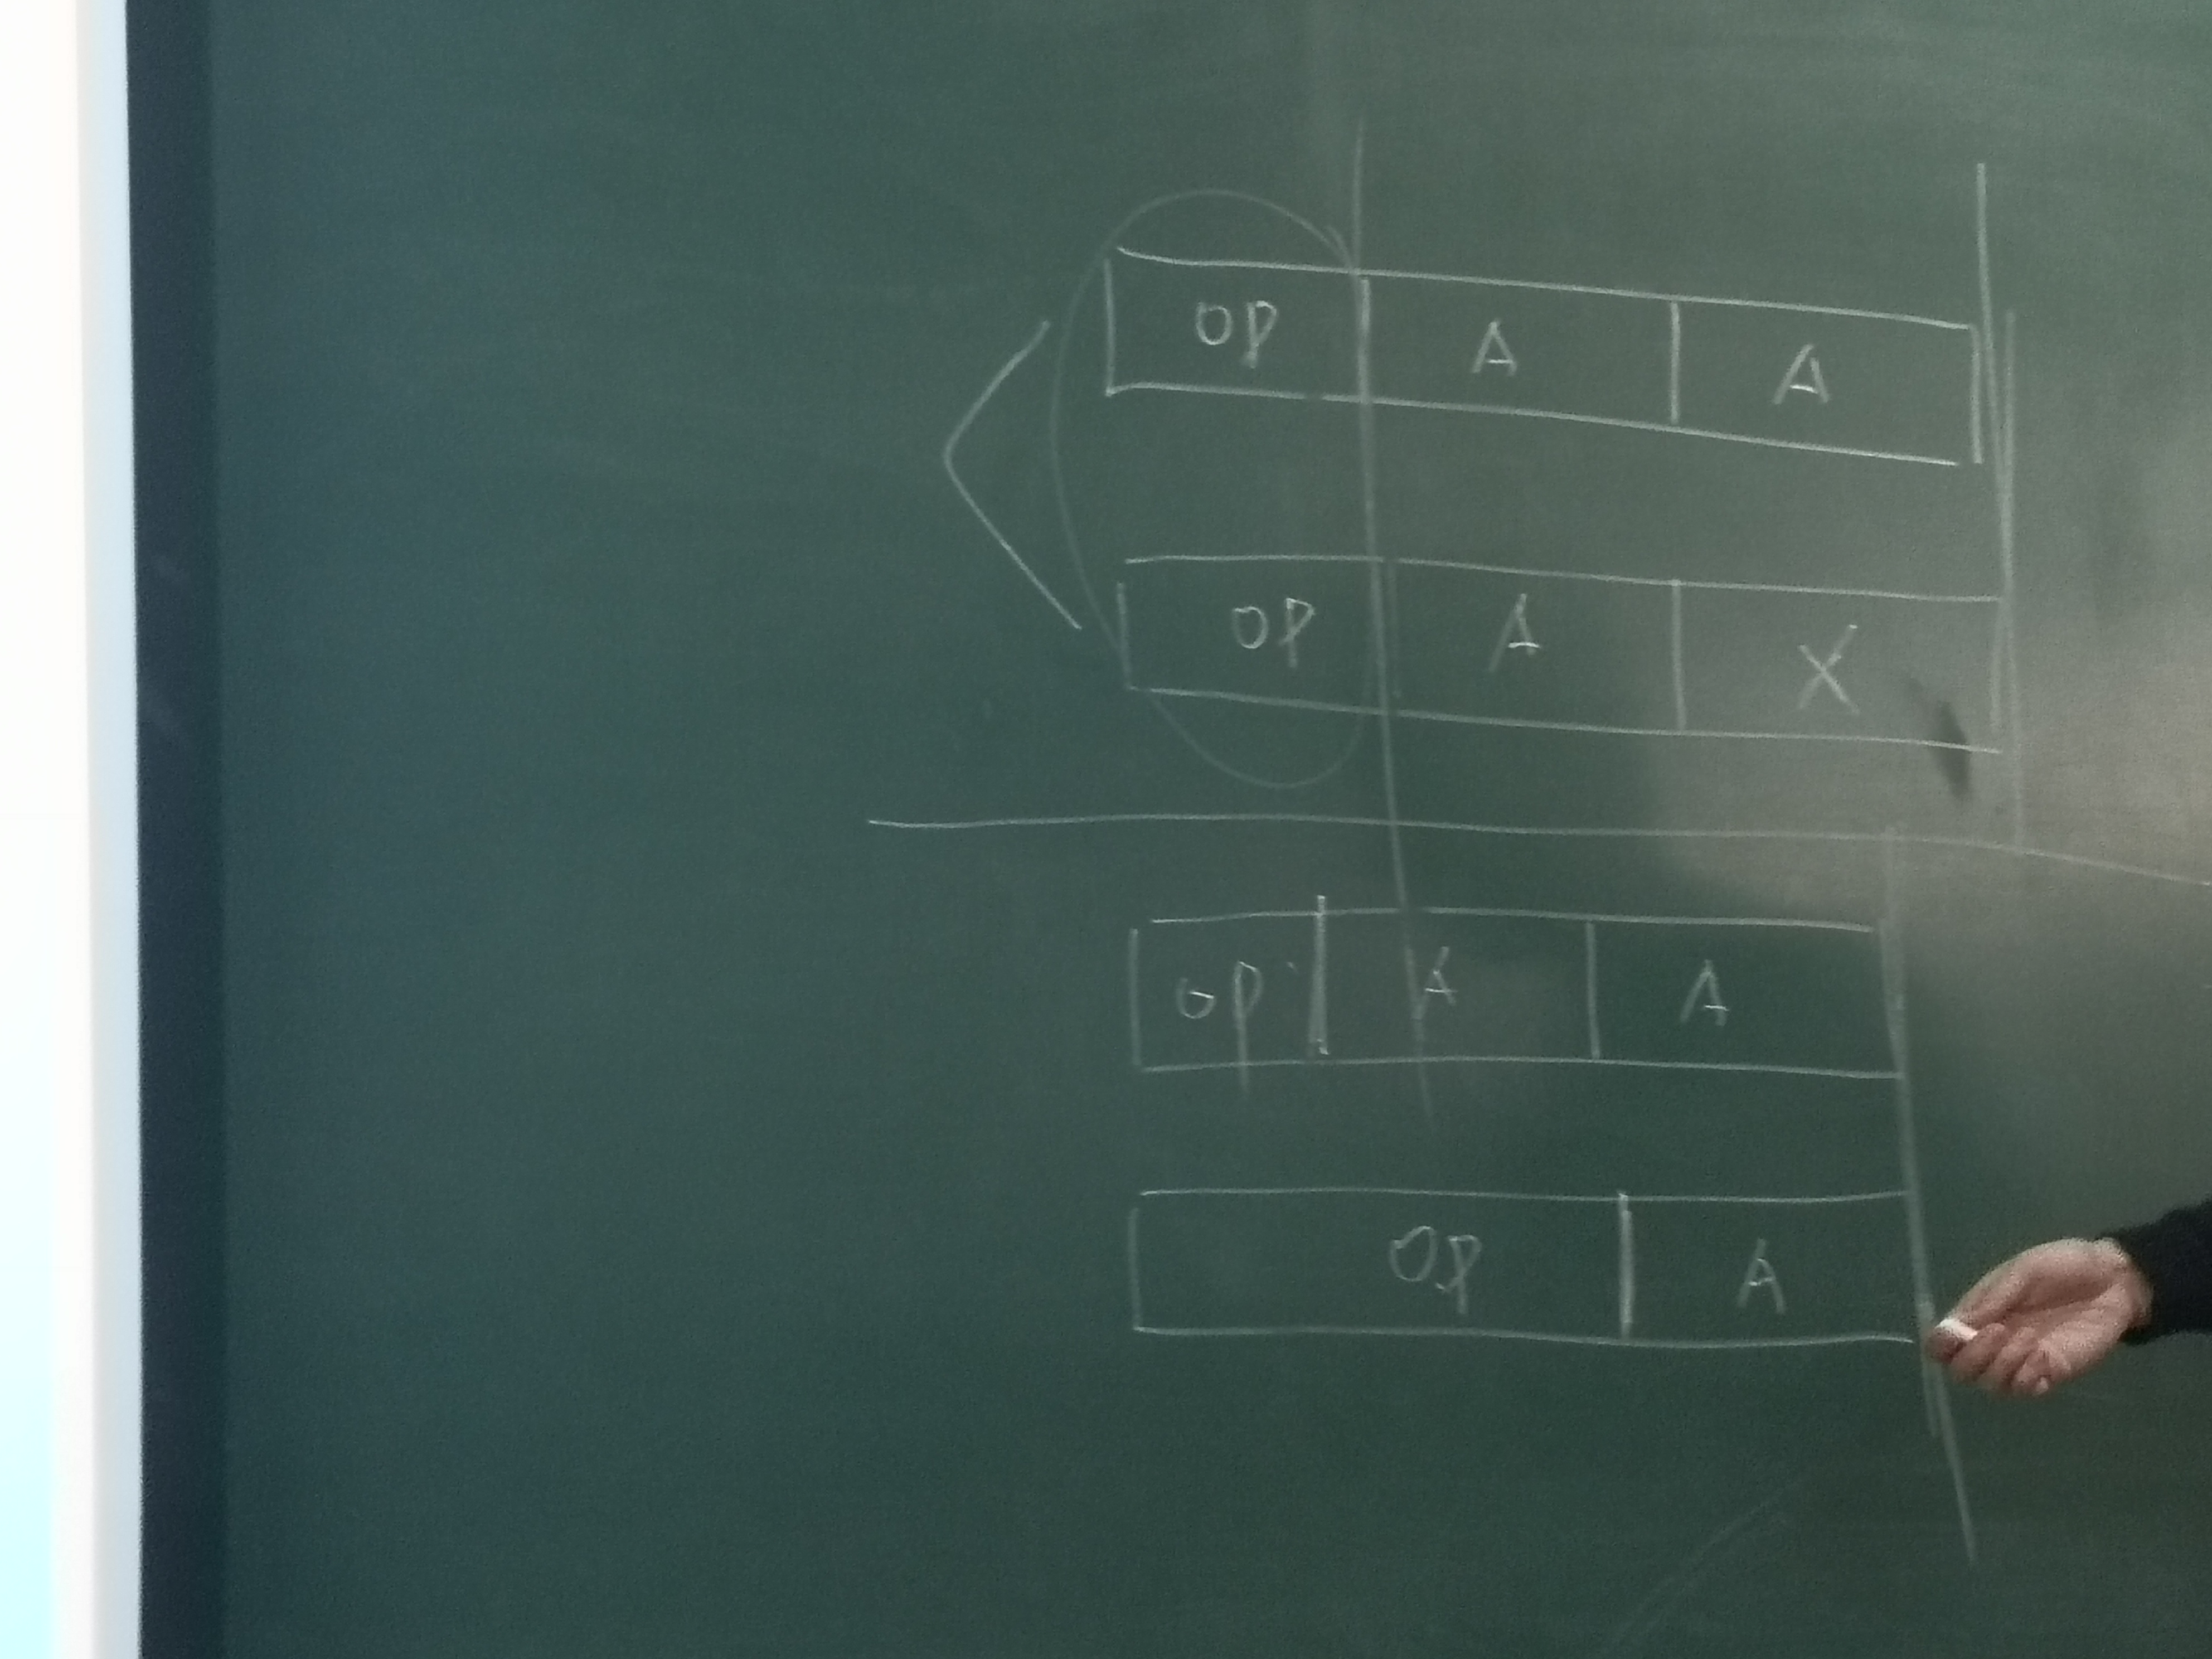 OP A A
OP A X
OP A A
OP A